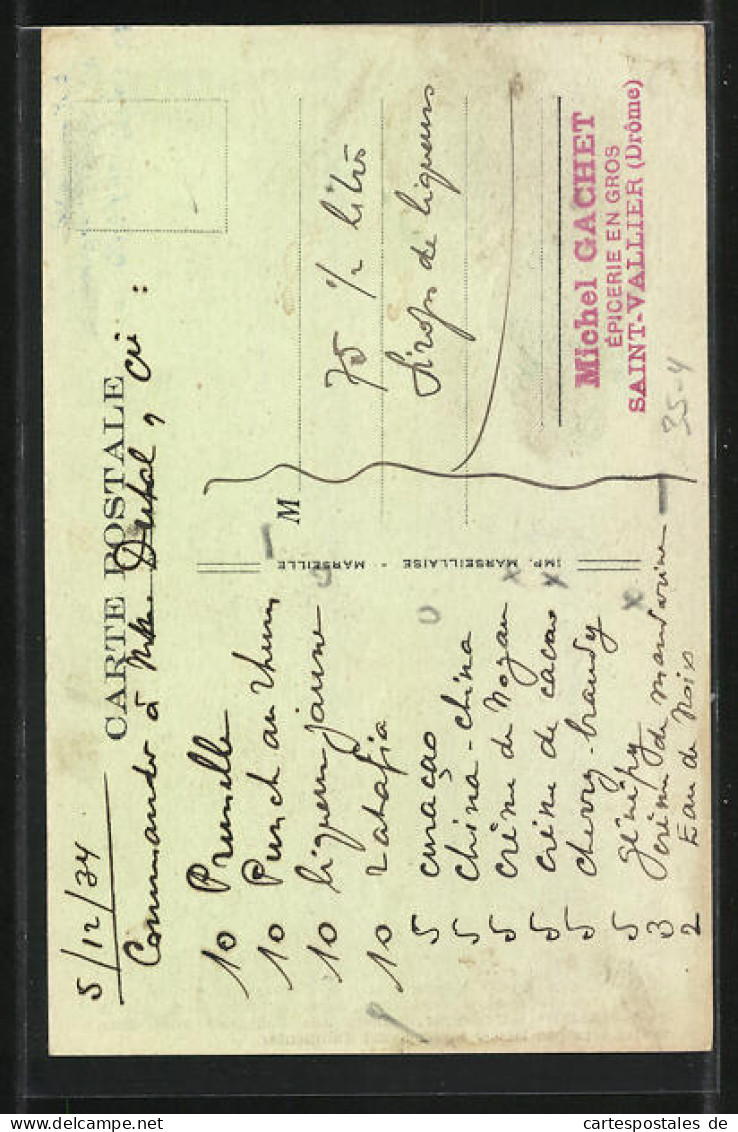 5/12/34
CARTE POSTALE
Commander à Mr. Duhal, Cie :
10 Prunelle
10 Punch au rhum
10 liqueur jaune
10 ratafia
5 curaçao
5 china-china
5 crème de Noyau
5 crème de cacao
5 cherry-brandy
5 génépy
3 crème de mandarine
2 Eau de Noix
IMP. MARSEILLAISE - MARSEILLE
M
75 1/2 litres
Sirops de liqueurs
Michel GACHET
ÉPICERIE EN GROS
SAINT-VALLIER (Drôme)
35-4
cartespostales de